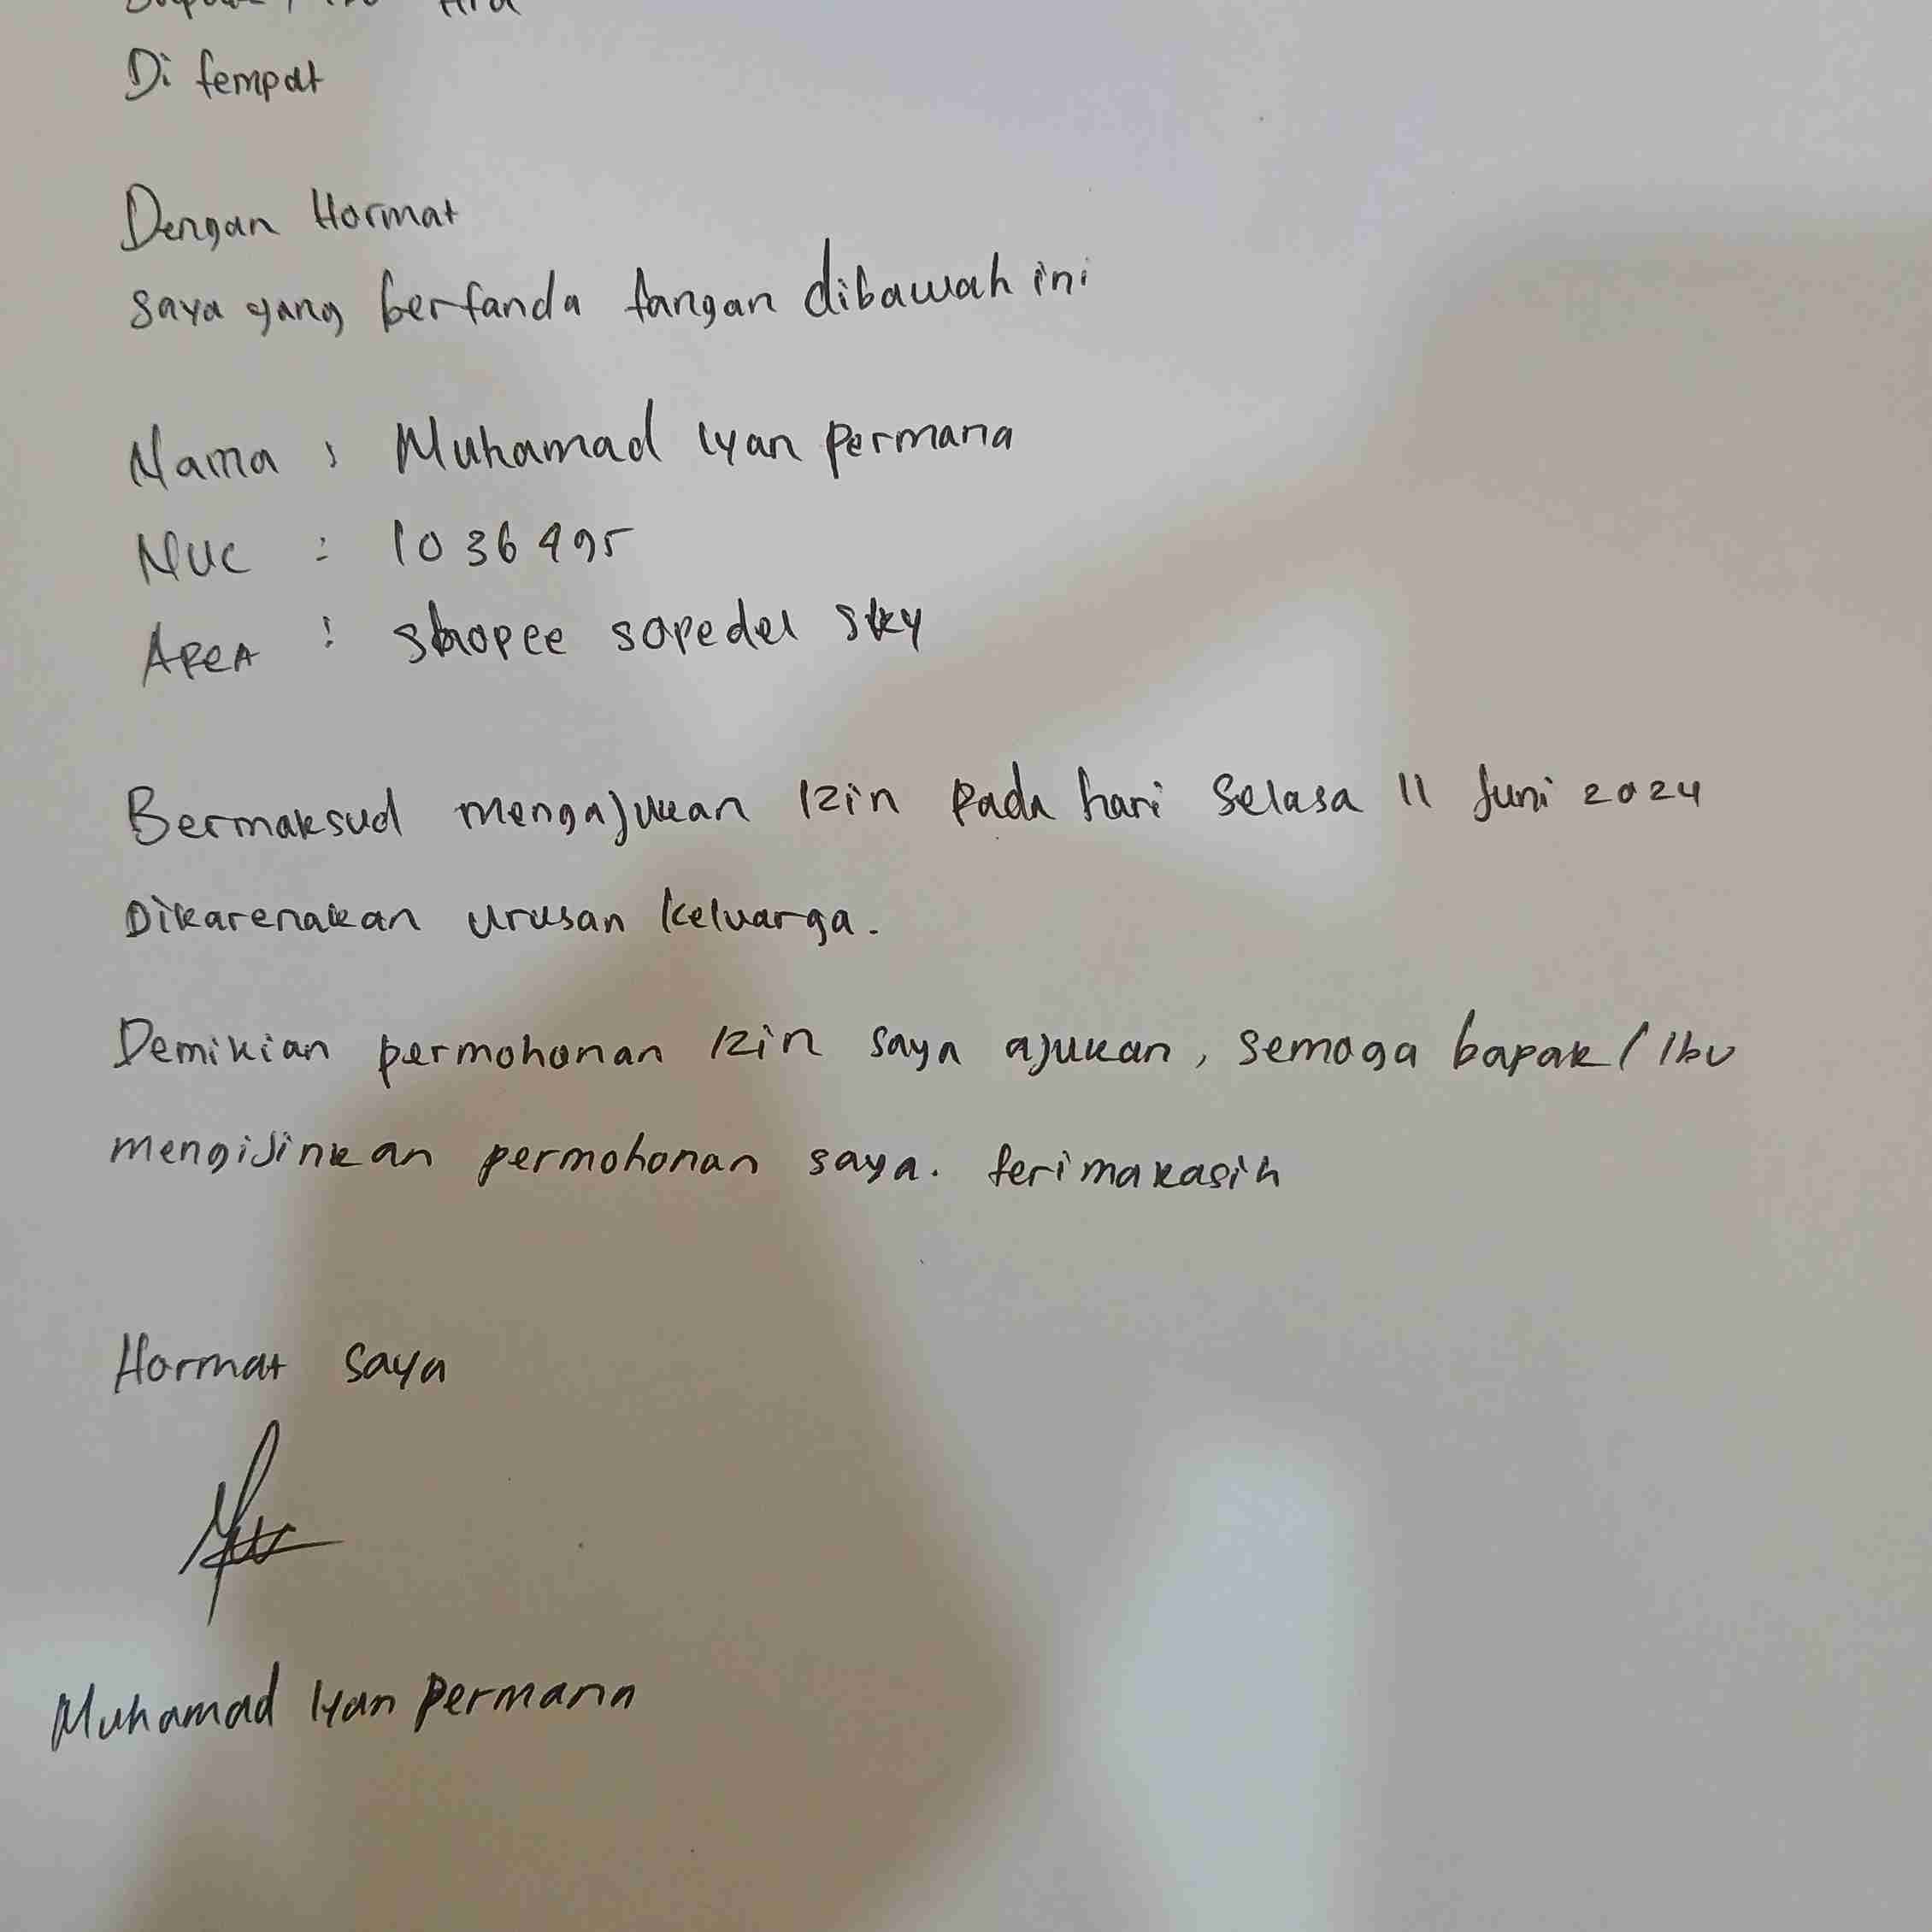 Di tempat
Dengan Hormat
Saya yang bertanda tangan dibawah ini
Nama : Muhamad Iyan permana
NUC : 1036495
AREA : shopee sopedel sky
Bermaksud mengajukan Izin pada hari Selasa 11 Juni 2024
Dikarenakan urusan keluarga.
Demikian permohonan Izin saya ajukan, semoga bapak/Ibu
mengijinkan permohonan saya. terimakasih
Hormat saya
Muhamad Iyan permana